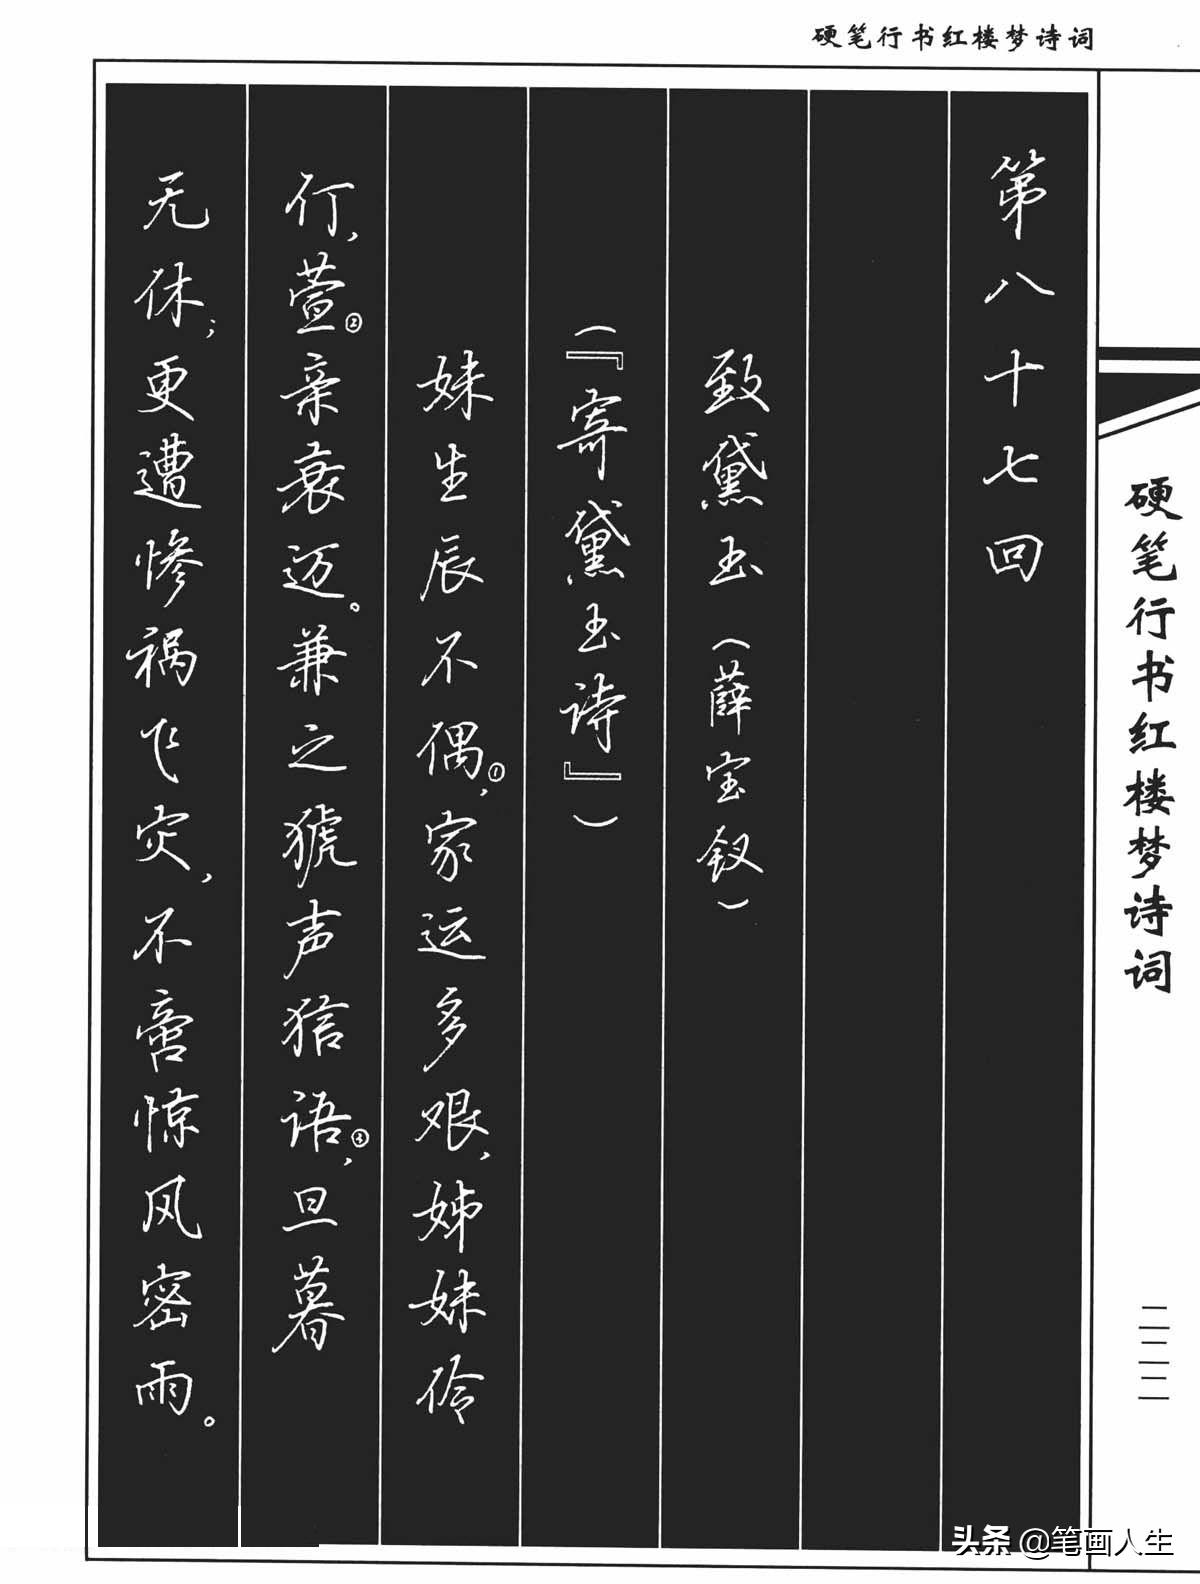 硬笔行书红楼梦诗词
硬笔行书红楼梦诗词
二二二
第八十七回
致黛玉（薛宝钗）
（『寄黛玉诗』）
妹生辰不偶①，家运多艰，姊妹伶
仃，萱②亲衰迈。兼之猇声狺语③，旦暮
无休；更遭惨祸飞灾，不啻惊风密雨。
头条 @笔画人生